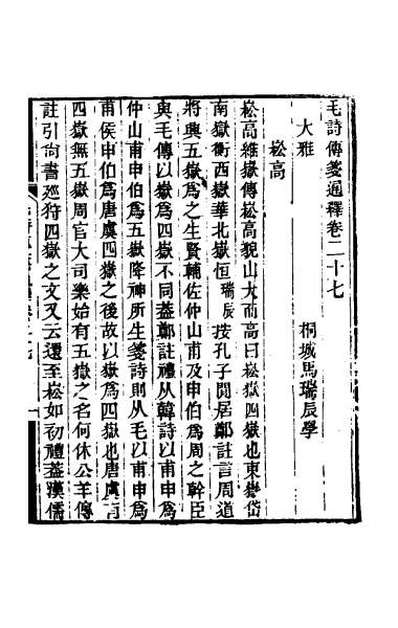 毛詩傳箋通釋卷二十七
桐城馬瑞辰學
大雅
崧高
崧高維嶽傳崧高貌山大而高曰崧嶽四嶽也東嶽岱
南嶽衡西嶽華北嶽恒瑞辰按孔子閒居鄭註言周道
將興五嶽爲之生賢輔佐仲山甫及申伯爲周之幹臣
與毛傳以嶽爲四嶽不同蓋鄭註禮則从韓詩以甫申爲
仲山甫申伯爲五嶽降神所生箋詩則从毛以甫申爲
甫侯申伯爲唐虞四嶽之後故以嶽爲四嶽也唐虞有
四嶽無五嶽周官大司樂始有五嶽之名何休公羊傳
註引尙書巡狩四嶽之文又云還至崧如初禮蓋漢儒